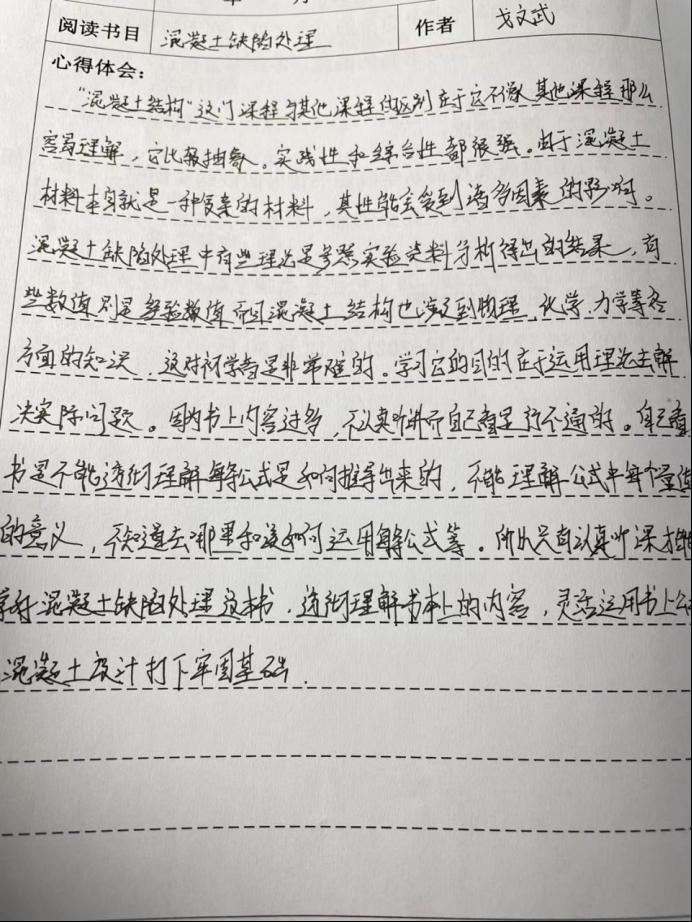 年 月
阅读书目 混凝土缺陷处理 作者 戈文武
心得体会：
"混凝土结构"这门课程与其他课程的区别在于它不像其他课程那么
容易理解，它比较抽象。实践性和综合性都很强。由于混凝土
材料本身就是一种复杂的材料，其性能会受到诸多因素的影响。
混凝土缺陷处理中有些理论是参照实验资料分析得出的结果，有
些数值则是经验数值 而且混凝土结构也涉及到物理、化学、力学等各
方面的知识，这对初学者是非常难的。学习它的目的在于运用理论去解
决实际问题。因为书上内容过多，不认真听讲而自己看是行不通的。自己看
书是不能透彻理解每个公式是如何推导出来的，不能理解公式中每个量值
的意义，不知道去哪里和该如何运用每个公式等。所以只有认真听课才能
学好混凝土缺陷处理这本书，透彻理解书本上的内容，灵活运用书上公
混凝土设计打下牢固基础.